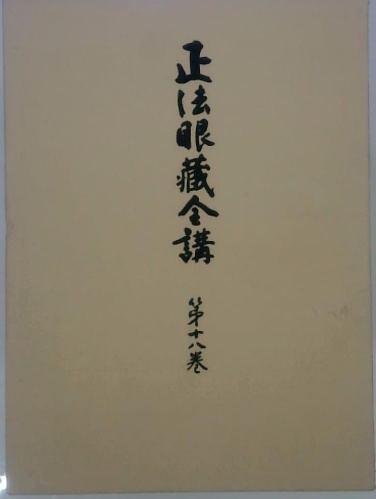 正法眼藏全講
第十八巻